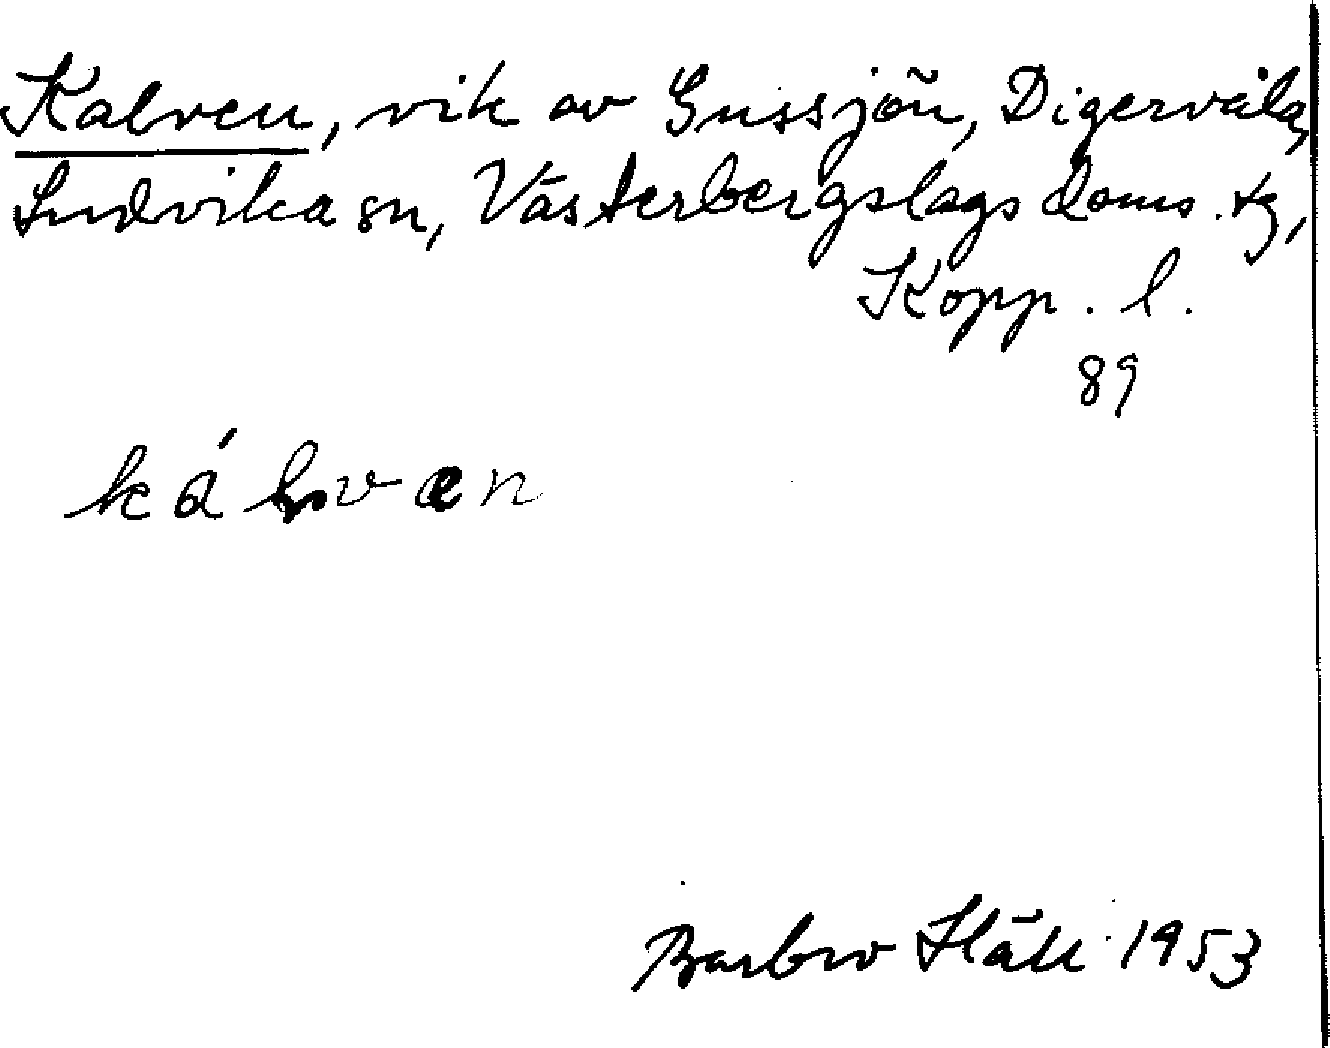 Kalven, vik av Gussjön, Digervåla,
Ludvika sn, Västerbergslags doms. tg,
Kopp. l.
89
kálven
Barbro Häll 1953